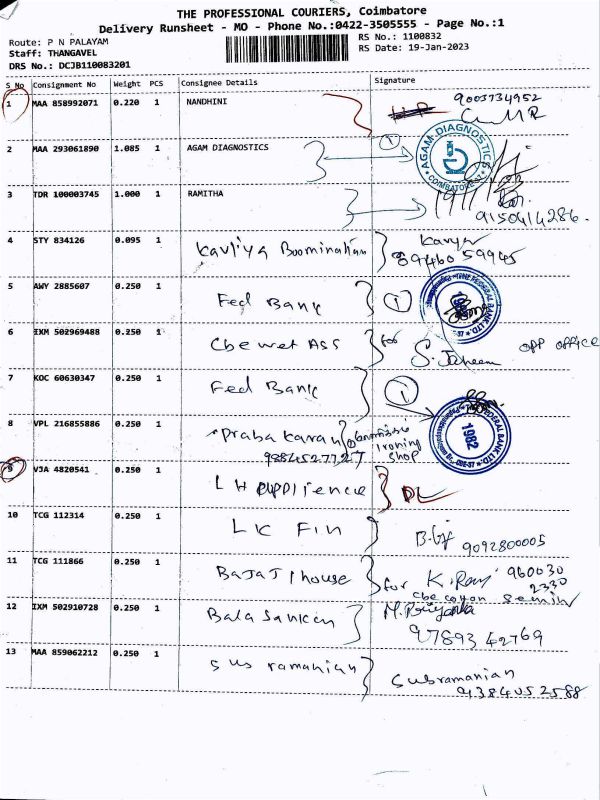 THE PROFESSIONAL COURIERS, Coimbatore
Delivery Runsheet - MO - Phone No.:0422-3505555 - Page No.:1
Route: P N PALAYAM
Staff: THANGAVEL
DRS No.: DCJB110083201
RS No.: 1100832
RS Date: 19-Jan-2023
S No Consignment No Weight PCS Consignee Details Signature
1 MAA 858992071 0.220 1 NANDHINI
2 MAA 293061890 1.085 1 AGAM DIAGNOSTICS 1 AGAM DIAGNOSTICS
3 TDR 100003745 1.000 1 RAMITHA 9150414286.
4 STY 834126 0.095 1 Kavya
5 AWY 2885607 0.250 1 Fed Bank 1
6 IXM 502969488 0.250 1 for opp office
7 KOC 60630347 0.250 1 Fed Bank 1
8 VPL 216855886 0.250 1 Praba Karan ironing shop 1982
9884527727
9 VJA 4820541 0.250 1 DL
10 TCG 112314 0.250 1 LIC Fin 9092800005
11 TCG 111866 0.250 1 Bajaj house for K.Raj 960030 2330
12 IXM 502910728 0.250 1 M.Priyanka
97893 42769
13 MAA 859062212 0.250 1 Subramanian
9384052588